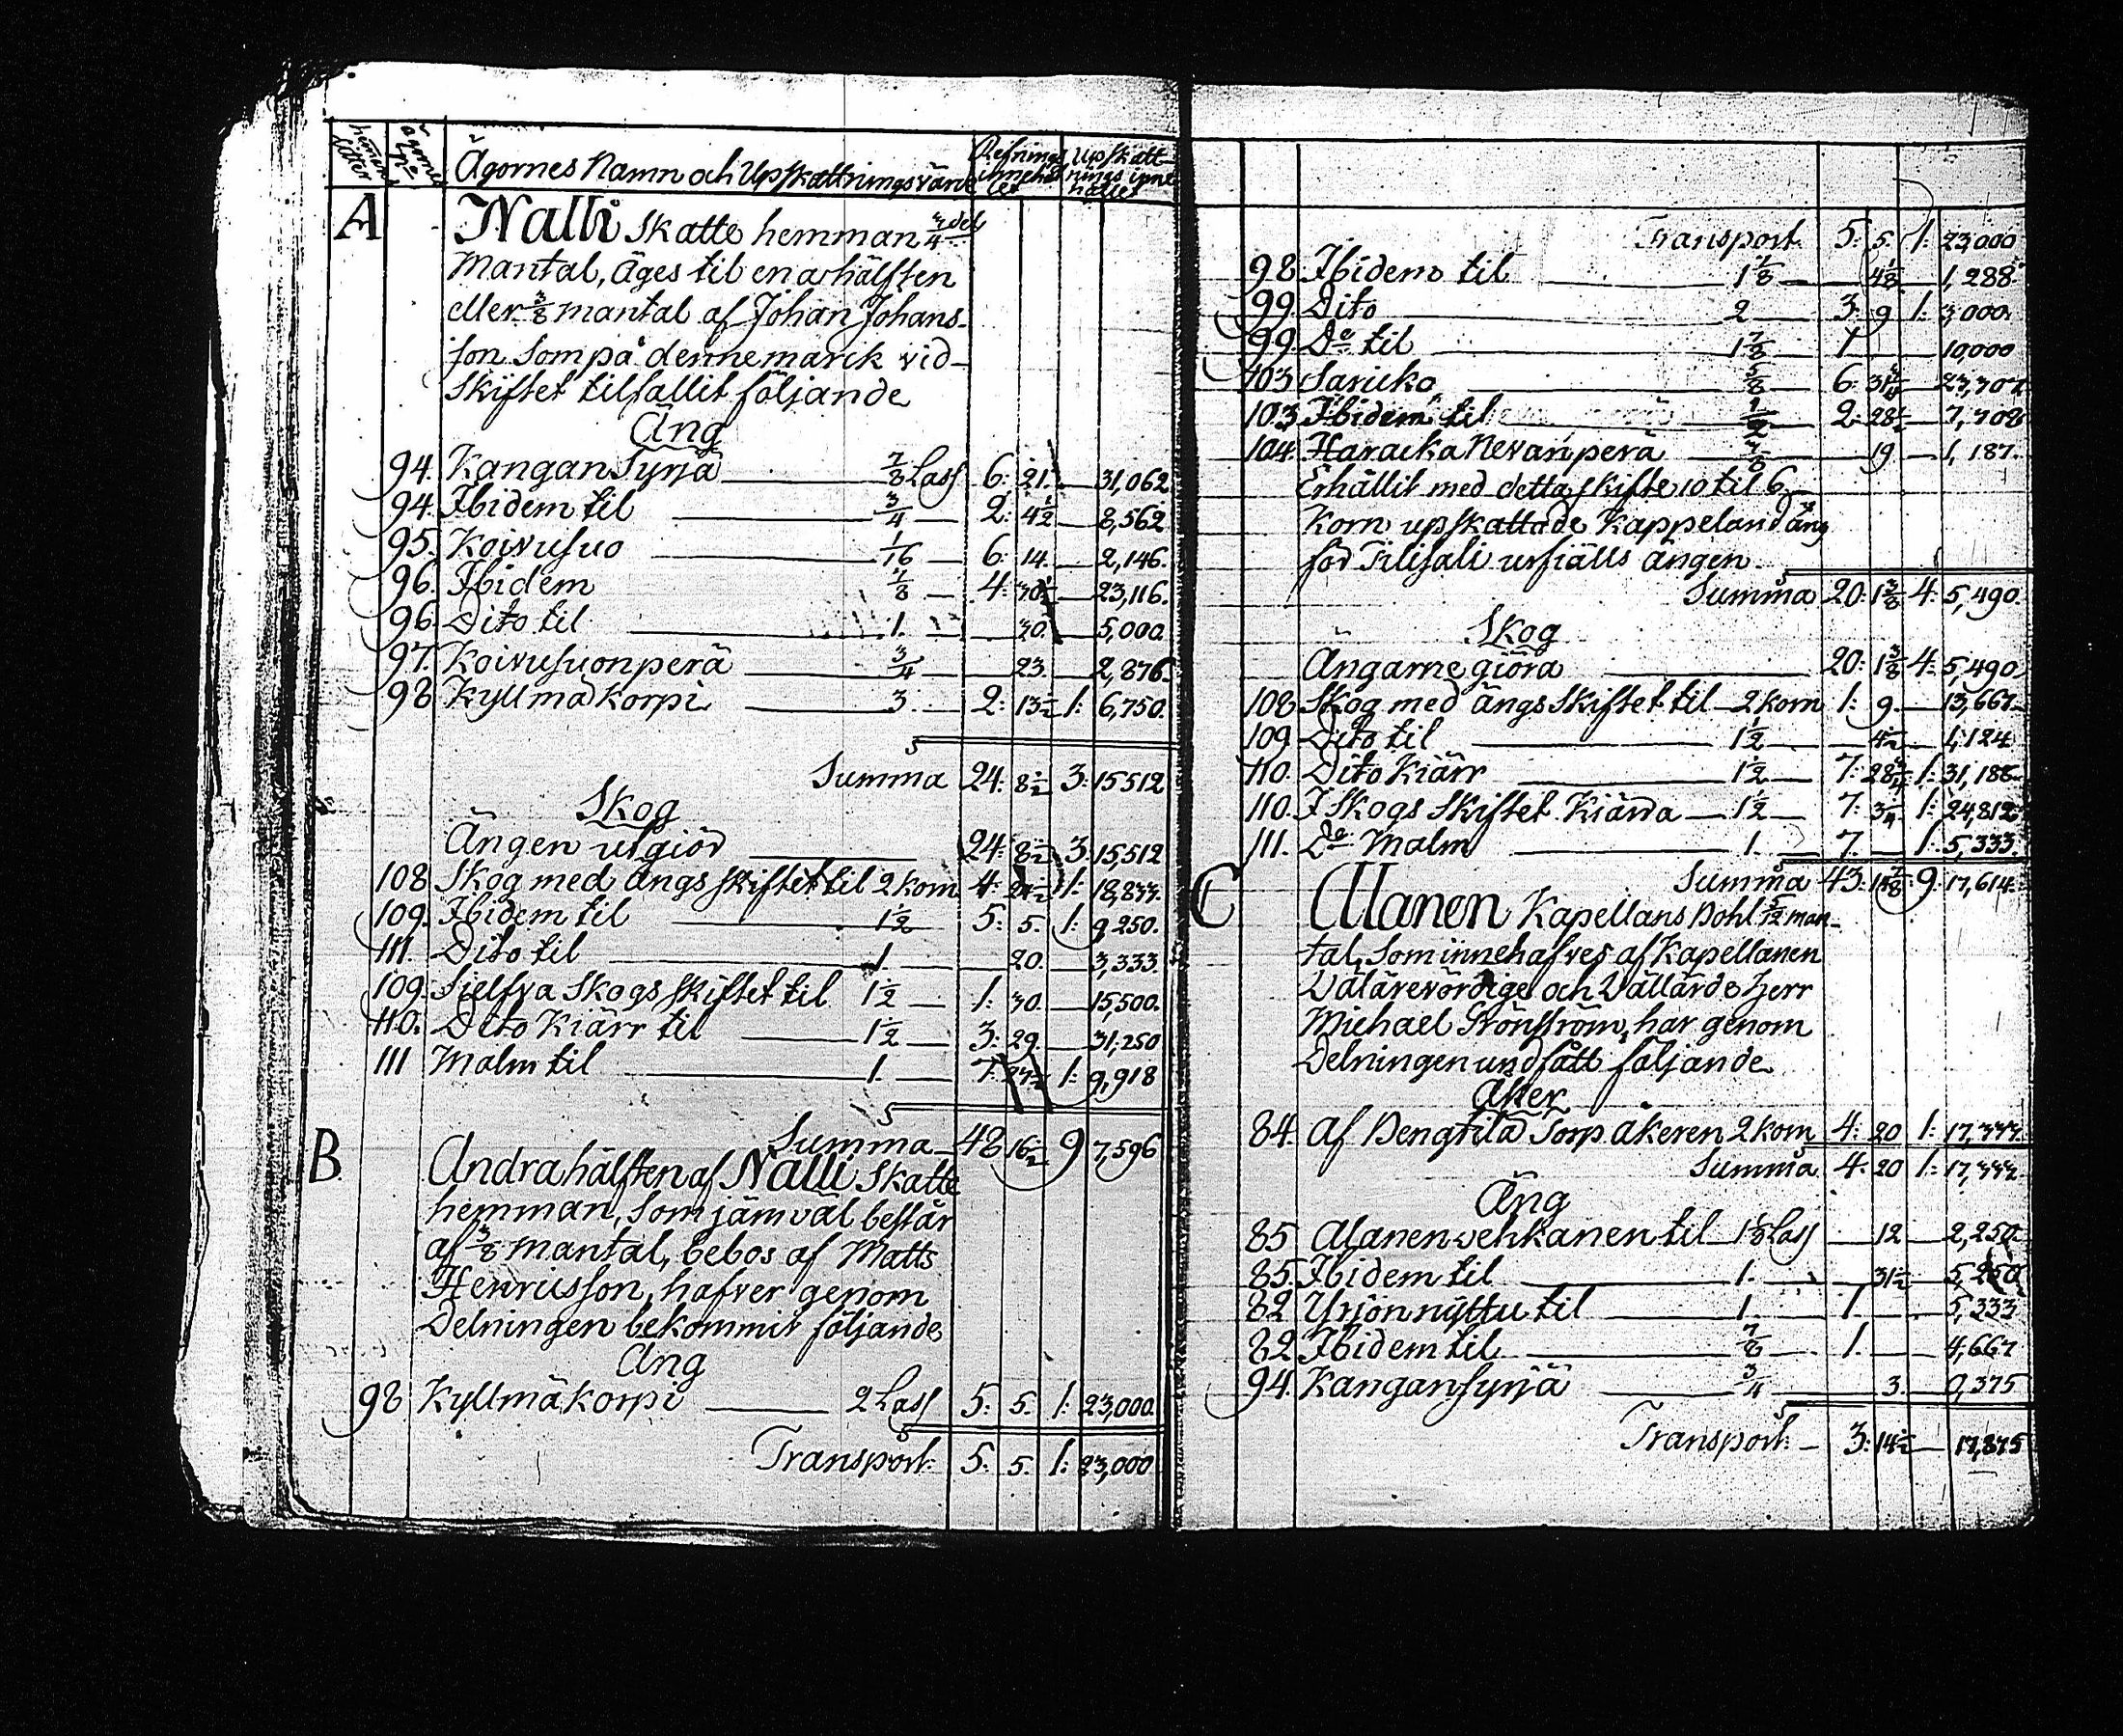 hemmans låter
ägornes No
Ägornes Namn och Upskattnings värde
Refnings innehållet
Upskattnings innehållet
A Nalli Skatte hemman 3/4 dels
Mantal, Äges til ena hälften
eller 3/8 mantal af Johan Johans-
son som på denne mark vid
Skiftet tilfallit följande
Äng
94. Kangansyriä 7/8 Lass 6: 21. — 31,062
94. Ibidem til 3/4 2: 4 1/2 — 8,562
95. Koivusuo 1/16 6: 14. — 2,146.
96. Ibidem 7/8 — 4: — 23,116.
96 Dito til 1. 30. 5,000.
97. Koivusuonperä 3/4 23. 2,876.
98 Kyllmäkorpi 3. 2: 13 1/2 1: 6,750.
Summa 24: 8 1/2 3: 15512
Skog
Ängen utgiör 24: 8 1/2 3: 15,512
108 Skog med ängs skiftet til 2 korn 4: 1: 18,833.
109. Ibidem til 1 1/2 5: 5. 1: 9,250.
111. Dito til 1. 20. 3,333.
109. Sielfva Skogs skiftet til 1 1/2 — 1: 30. — 15,500.
110. Dito Kiärr til 1 1/2 — 3: 29. — 31,250
111 Malm til 1. — 7: 1: 9,918
Summa 48 16 1/2 9 7,596
B. Andra hälften af Nalli Skatte
hemman, som jämväl består
af 3/8 mantal, bebos af Matts
Henricsson, hafver genom
Delningen bekommit följande
Äng
98 Kyllmäkorpi 2 Lass 5: 5. 1: 23,000.
Transport 5: 5. 1: 23,000
Transport 5: 5. 1: 23,000
98 Ibidem til 1 1/8 — 4 1/8 — 1,288
99. Dito 2 — 3: 9 1: 3,000.
99 Do til 1 7/8 1 10,000
103 Saricko 5/8 6: 23,307
103 Ibidem til 2: 7,708
104. Haracka Nevanperä 7/8 19 — 1,187.
Erhållit med detta skifte 10 til 6
Korn upskattade Kappeland äng
för Tilisali urfiälls ängen.
Summa 20: 1 3/8 4: 5,490.
Skog
Ängarne giöra 20: 1 3/8 4: 5,490.
108 Skog med ängs Skiftet til 2 korn 1: 9. — 13,667.
109. Dito til 1 1/2 — 4 1/2 — 1,124
110. Dito Kiärr 1 1/2 — 7: 28 3/4 1: 31,188
110. I Skogs Skiftet Kiärra — 1 1/2 — 7: 3/4 1: 24,812
111. Do Malm 1. 7. 1: 5,333.
Summa 43: 9: 17,614.
C Alanen Kapellans Bohl 5/12 man-
tal, som innehafves af Kapellanen
Välärevördige och Vällärde Herr
Michael Grönström, har genom
Delningen undfått följande
Åker
84. af Bengtila Torp åkeren 2 korn 4: 20 1: 17,333.
Summa 4: 20 1: 17,333.
Äng
85 Alanenvehkanen til 1 1/8 Lass 12 — 2,250.
85. Ibidem til 1. 31 1/2 5,250
82 Yriön nyttu til 1. 1. 5,333
82 Ibidem til 7/8 1. 4,667
94. Kangansyriä 3/4 3 0,375
Transport. 3: 14 1/2 — 17,875